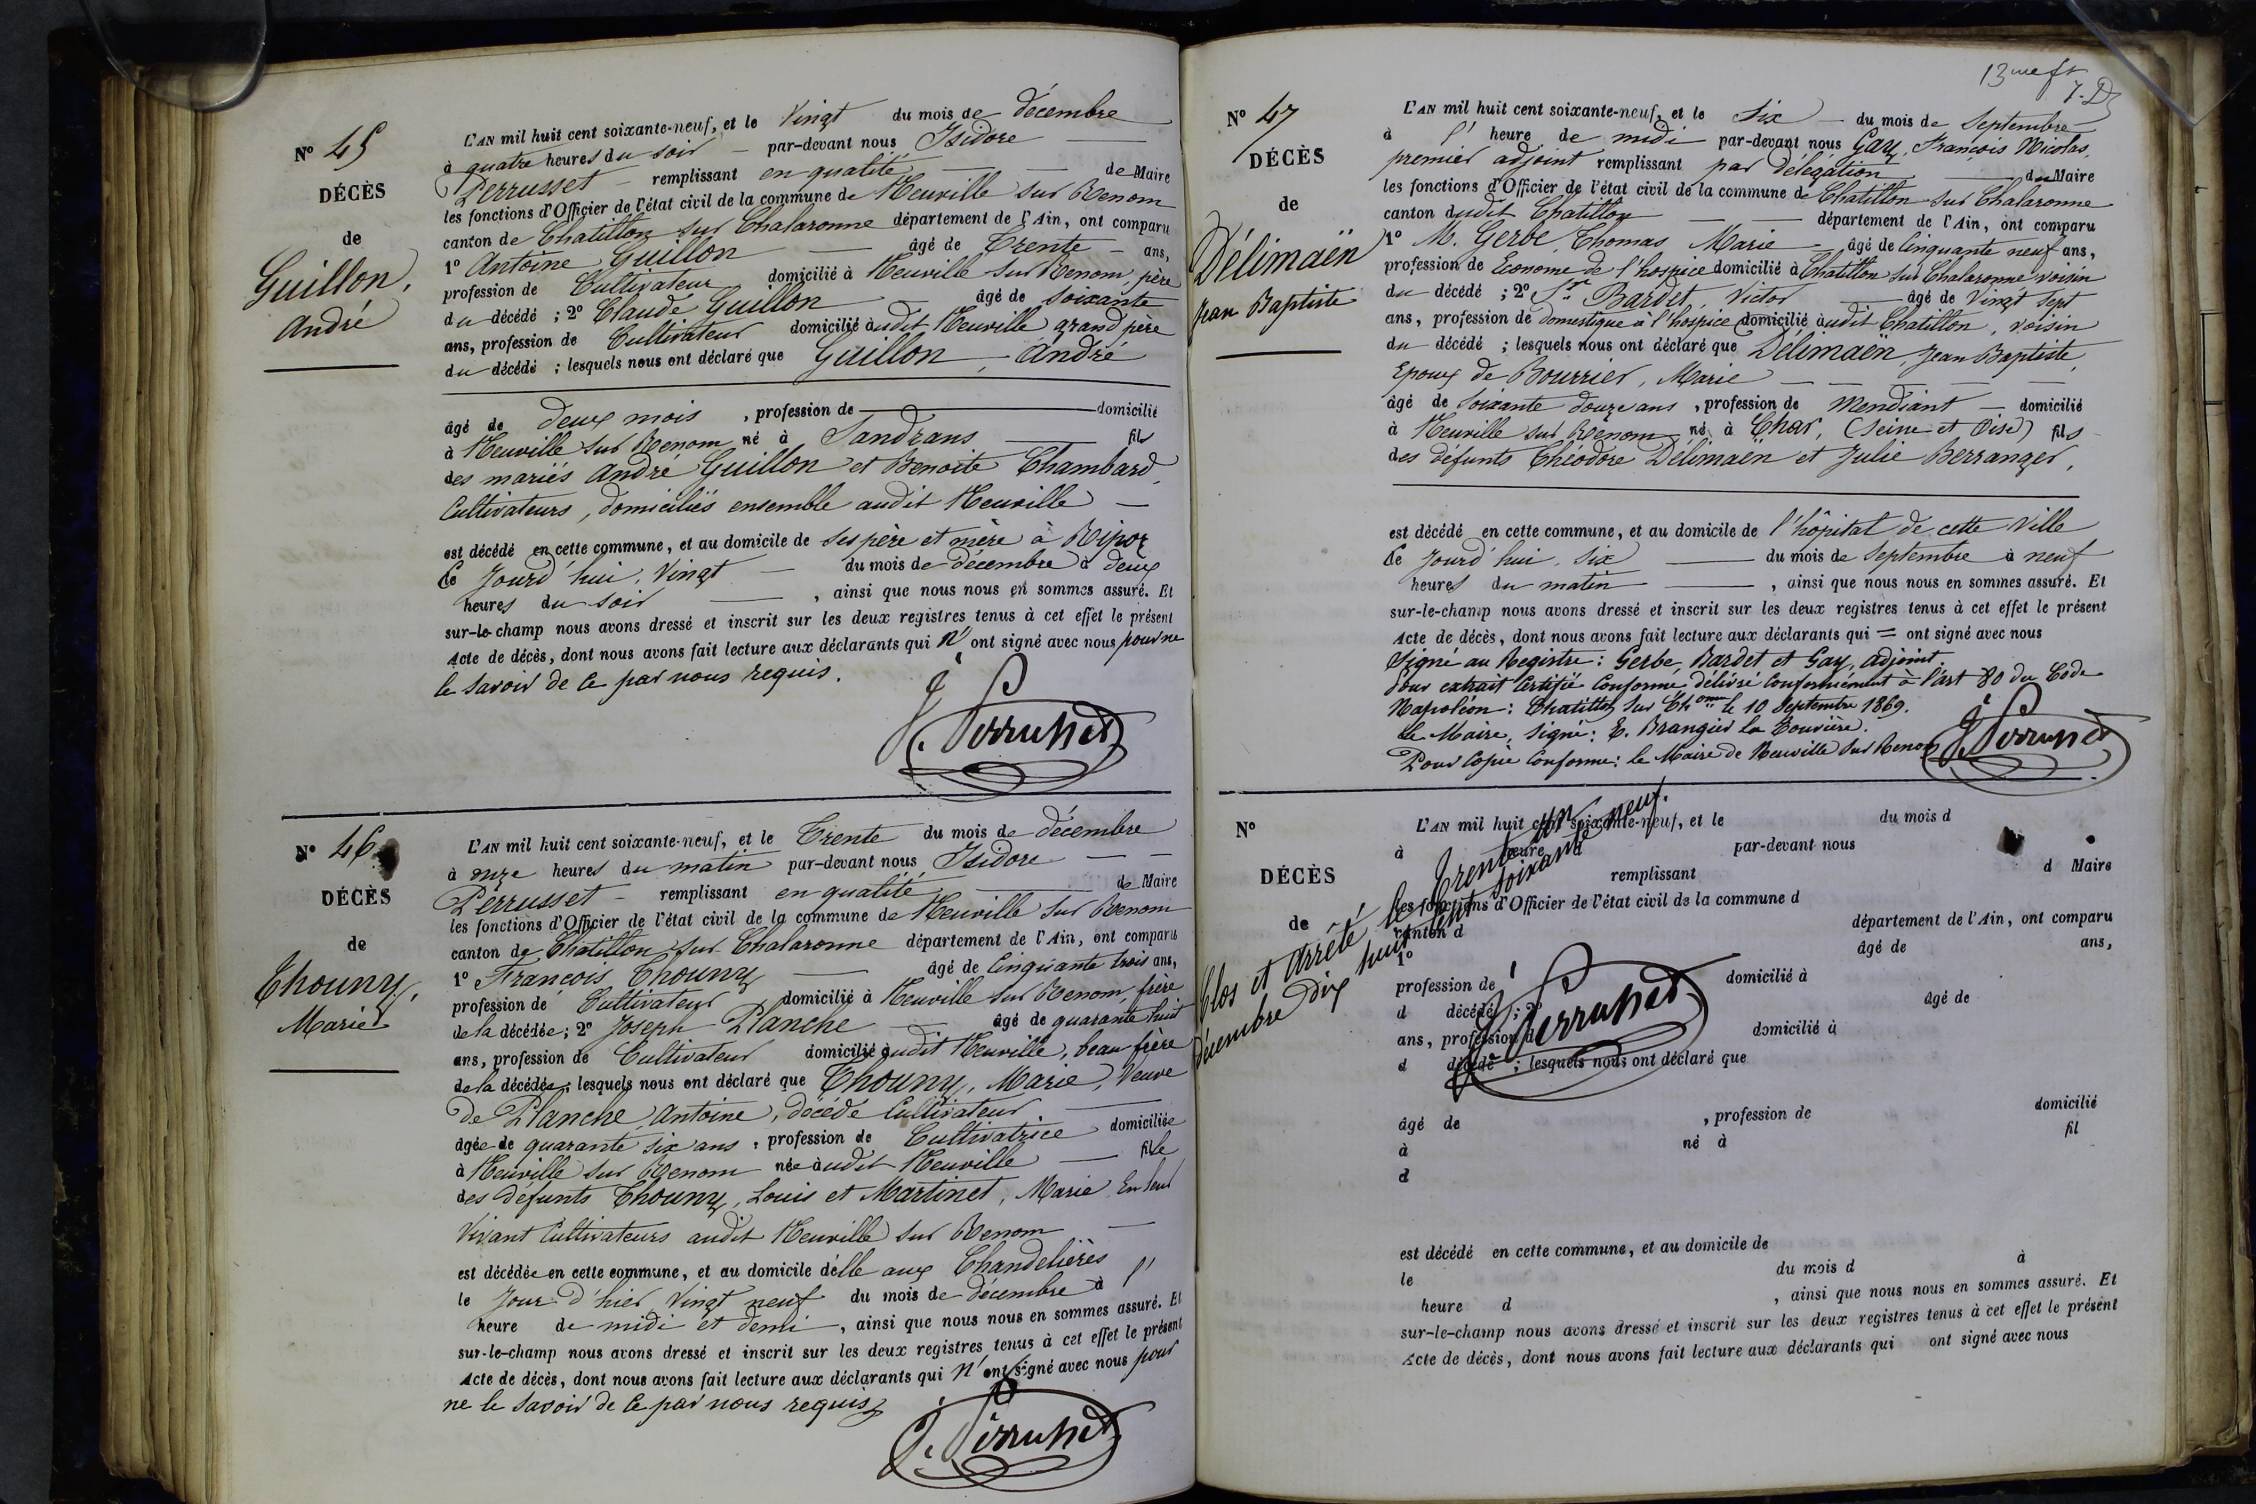 N° 45
DÉCÈS
de
Guillon,
André
L'AN mil huit cent soixante-neuf, et le Vingt du mois de décembre
à quatre heures du soir — par-devant nous Isidore —
Perrusset — remplissant en qualité — de Maire
les fonctions d'Officier de l'état civil de la commune de Neuville sur Renom
canton de Chatillon sur Chalaronne département de l'Ain, ont comparu
1° Antoine Guillon — âgé de Trente — ans,
profession de Cultivateur domicilié à Neuville sur Renom, père
du décédé ; 2° Claude Guillon — âgé de soixante
ans, profession de Cultivateur domicilié audit Neuville grand père
du décédé ; lesquels nous ont déclaré que Guillon, André
âgé de deux mois, profession de — domicilié
à Neuville sur Renom né à Sandrans — fils
des mariés André Guillon et Benoite Chambard,
Cultivateurs, domiciliés ensemble audit Neuville —
est décédé en cette commune, et au domicile de ses père et mère à Ripoz
Ce Jourd'hui, Vingt — du mois de décembre à deux
heures du soir — , ainsi que nous nous en sommes assuré. Et
sur-le-champ nous avons dressé et inscrit sur les deux registres tenus à cet effet le présent
Acte de décès, dont nous avons fait lecture aux déclarants qui n' ont signé avec nous pour ne
le savoir de ce par nous requis.
J. Perrusset
N° 46
DÉCÈS
de
Thouny,
Marie
L'AN mil huit cent soixante-neuf, et le Trente du mois de décembre
à onze heures du matin par-devant nous Isidore — —
Perrusset — remplissant en qualité — de Maire
les fonctions d'Officier de l'état civil de la commune de Neuville sur Renom
canton de Chatillon sur Chalaronne département de l'Ain, ont comparu
1° François Thouny — âgé de Cinquante trois ans,
profession de Cultivateur domicilié à Neuville sur Renom, frère
de la décédée ; 2° Joseph Planche — âgé de quarante huit
ans, profession de Cultivateur domicilié audit Neuville, beau frère
de la décédée ; lesquels nous ont déclaré que Thouny, Marie, Veuve
de Planche, Antoine, décédé Cultivateur. —
âgée de quarante six ans, profession de Cultivatrice domiciliée
à Neuville sur Renom née audit Neuville — fille
des défunts Thouny, Louis et Martinet, Marie En leur
Vivant Cultivateurs audit Neuville sur Renom —
est décédée en cette commune, et au domicile d'elle aux Chandelières
le Jour d'hier Vingt neuf du mois de décembre à l'
heure de midi et demi, ainsi que nous nous en sommes assuré. Et
sur-le-champ nous avons dressé et inscrit sur les deux registres tenus à cet effet le présent
Acte de décès, dont nous avons fait lecture aux déclarants qui n' ont signé avec nous pour
ne le savoir de ce par nous requis
J. Perrusset
13me ft
N° 47
DÉCÈS
de
Délimaën
Jean Baptiste
L'AN mil huit cent soixante-neuf, et le Six — du mois de Septembre
à l' heure de midi par-devant nous Gay, François Nicolas,
premier adjoint remplissant par délégation — du Maire
les fonctions d'Officier de l'état civil de la commune de Chatillon sur Chalaronne
canton dudit Chatillon — — département de l'Ain, ont comparu
1° M. Gerbe, Thomas Marie — âgé de Cinquante neuf ans,
profession de Econome de l'hospice domicilié à Chatillon sur Chalaronne, voisin
du décédé ; 2° Sr Bardet, Victor — âgé de Vingt sept
ans, profession de domestique à l'hospice domicilié audit Chatillon, voisin
du décédé ; lesquels nous ont déclaré que Délimaën, Jean Baptiste,
Epoux de Bourrier, Marie — — — —
âgé de Soixante douze ans, profession de Mendiant — domicilié
à Neuville sur Renom né à Char, (Seine et Oise) fils
des défunts Théodore Délimaën et Julie Berranger,
est décédé en cette commune, et au domicile de l'hôpital de cette Ville
Ce Jourd'hui, six — du mois de Septembre à neuf
heures du matin — , ainsi que nous nous en sommes assuré. Et
sur-le-champ nous avons dressé et inscrit sur les deux registres tenus à cet effet le présent
Acte de décès, dont nous avons fait lecture aux déclarants qui = ont signé avec nous
Signé au Registre : Gerbe, Bardet et Gay, adjoint.
Pour extrait Certifié Conforme, délivré Conformément à l'art 80 du Code
Napoléon : Chatillon sur Ch.onne le 10 Septembre 1869.
Le Maire, Signé : E. Brangier la Touvière.
Pour Copie Conforme : le Maire de Neuville sur Renom
J. Perrusset
N°
DÉCÈS
de
L'AN mil huit cent soixante-neuf, et le du mois d
à heure d par-devant nous
remplissant d Maire
les fonctions d'Officier de l'état civil de la commune d
canton d département de l'Ain, ont comparu
1° âgé de ans,
profession de domicilié à
d décédé ; 2° âgé de
ans, profession d domicilié à
d décédé ; lesquels nous ont déclaré que
âgé de , profession de domicilié
à né à fil
d
est décédé en cette commune, et au domicile de
le du mois d à
heure d , ainsi que nous nous en sommes assuré. Et
sur-le-champ nous avons dressé et inscrit sur les deux registres tenus à cet effet le présent
Acte de décès, dont nous avons fait lecture aux déclarants qui ont signé avec nous
Clos et Arrêté le Trente un
décembre Dix huit cent soixante neuf.
J. Perrusset